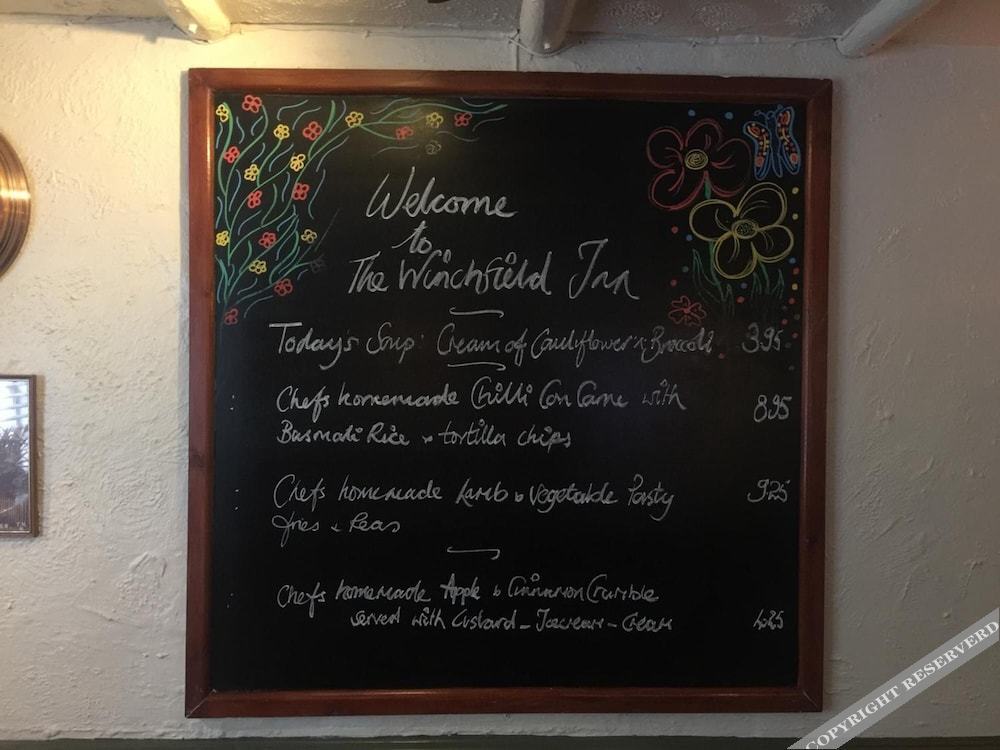 Welcome
to
The Winchfield Inn
Today's Soup: Cream of Cauliflower & Broccoli 3.95
Chefs homemade Chilli Con Carne with 8.95
Basmati Rice & tortilla chips
Chefs homemade Lamb & Vegetable Pasty 9.25
fries & Peas
Chefs homemade Apple & Cinnamon Crumble
served with Custard - Icecream - Cream 4.25
COPYRIGHT RESERVERD